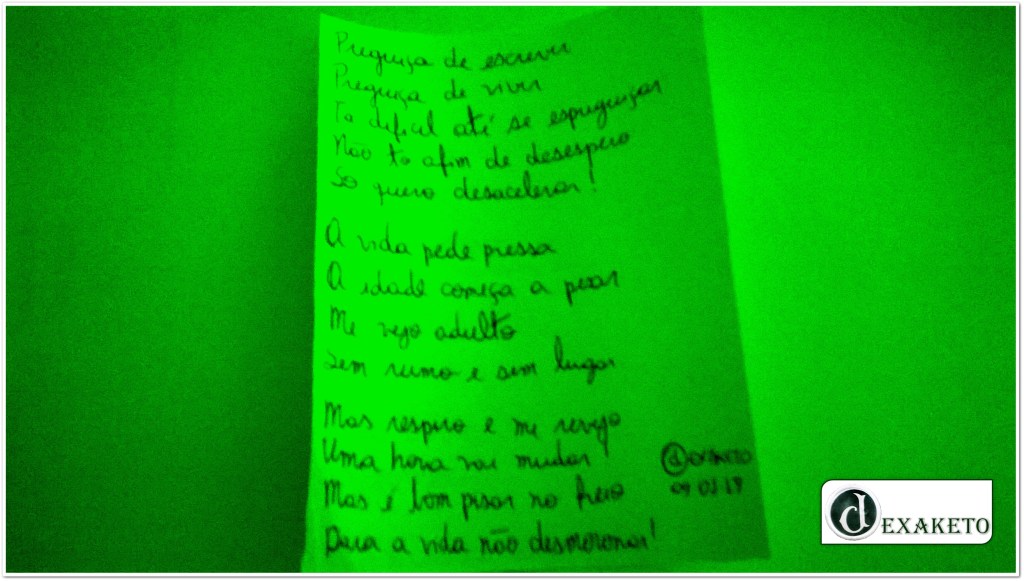 Preguiça de escrever
Preguiça de viver
Ta dificil até se espreguiçar
Não to afim de desespero
Só quero desacelerar!
A vida pede pressa
A idade começa a pesar
Me vejo adulto
Sem rumo e sem lugar
Mas respiro e me revejo
Uma hora vai mudar
Mas é bom pisar no freio
Para a vida não desmoronar!
DEXAKETO
DEXAKETO